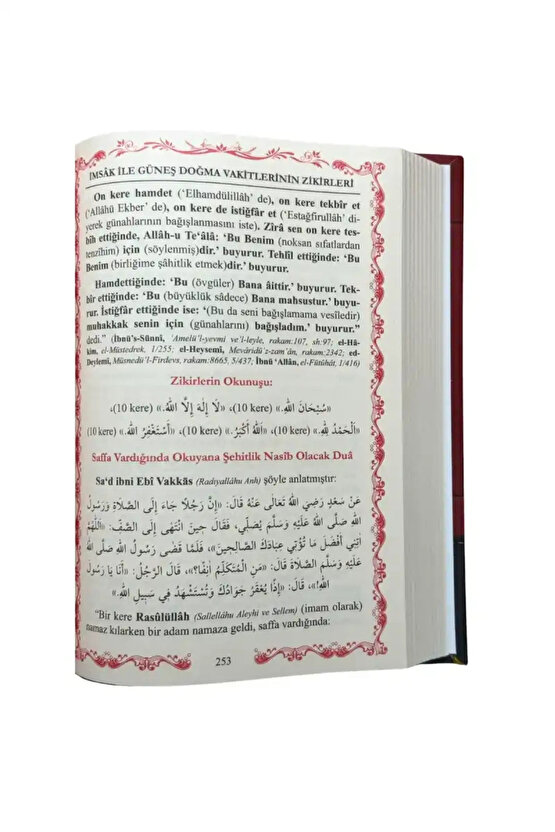 İMSÂK İLE GÜNEŞ DOĞMA VAKİTLERİNİN ZİKİRLERİ
On kere hamdet (‘Elhamdülillâh’ de), on kere tekbîr et
(‘Allâhü Ekber’ de), on kere de istiğfâr et (‘Estağfirullâh’ di-
yerek günahlarının bağışlanmasını iste). Zîrâ sen on kere tes-
bîh ettiğinde, Allâh-u Te‘âlâ: ‘Bu Benim (noksan sıfatlardan
tenzîhim) için (söylenmiş)dir.’ buyurur. Tehlîl ettiğinde: ‘Bu
Benim (birliğime şâhitlik etmek)dir.’ buyurur.
Hamdettiğinde: ‘Bu (övgüler) Bana âittir.’ buyurur. Tek-
bîr ettiğinde: ‘Bu (büyüklük sâdece) Bana mahsustur.’ buyu-
rur. İstiğfâr ettiğinde ise: ‘(Bu da seni bağışlamama vesîledir)
muhakkak senin için (günahlarını) bağışladım.’ buyurur.”
dedi.” (İbnü’s-Sünnî, ‘Amelü’l-yevmi ve’l-leyle, rakam:107, sh:97; el-Hâ-
kim, el-Müstedrek, 1/255; el-Heysemî, Mevâridü’z-zam’ân, rakam:2342; ed-
Deylemî, Müsnedü’l-Firdevs, rakam:8665, 5/437; İbnü ‘Allân, el-Fütûhât, 1/416)
Zikirlerin Okunuşu:
«سُبْحَانَ اللّٰهِ.» (10 kere)، «لَا إِلٰهَ إِلَّا اللّٰهُ.» (10 kere)،
«اَلْحَمْدُ لِلّٰهِ.» (10 kere)، «اَللّٰهُ أَكْبَرُ.» (10 kere)، «أَسْتَغْفِرُ اللّٰهَ.» (10 kere)
Saffa Vardığında Okuyana Şehitlik Nasîb Olacak Duâ
Sa‘d ibni Ebî Vakkâs (Radıyallâhu Anh) şöyle anlatmıştır:
عَنْ سَعْدٍ رَضِيَ اللّٰهُ تَعَالَى عَنْهُ قَالَ: «إِنَّ رَجُلًا جَاءَ إِلَى الصَّلَاةِ وَرَسُولُ
اللّٰهِ صَلَّى اللّٰهُ عَلَيْهِ وَسَلَّمَ يُصَلِّي، فَقَالَ حِينَ انْتَهَى إِلَى الصَّفِّ: «اَللّٰهُمَّ
اٰتِنِي أَفْضَلَ مَا تُؤْتِي عِبَادَكَ الصَّالِحِينَ»، فَلَمَّا قَضَى رَسُولُ اللّٰهِ صَلَّى اللّٰهُ
عَلَيْهِ وَسَلَّمَ الصَّلَاةَ قَالَ: «مَنِ الْمُتَكَلِّمُ اٰنِفًا؟»، قَالَ الرَّجُلُ: «أَنَا يَا رَسُولَ
اللّٰهِ!»، قَالَ: «إِذًا يُعْقَرُ جَوَادُكَ وَتُسْتَشْهَدُ فِي سَبِيلِ اللّٰهِ.»
“Bir kere Rasûlüllâh (Sallellâhu Aleyhi ve Sellem) (imam olarak)
namaz kılarken bir adam namaza geldi, saffa vardığında:
253